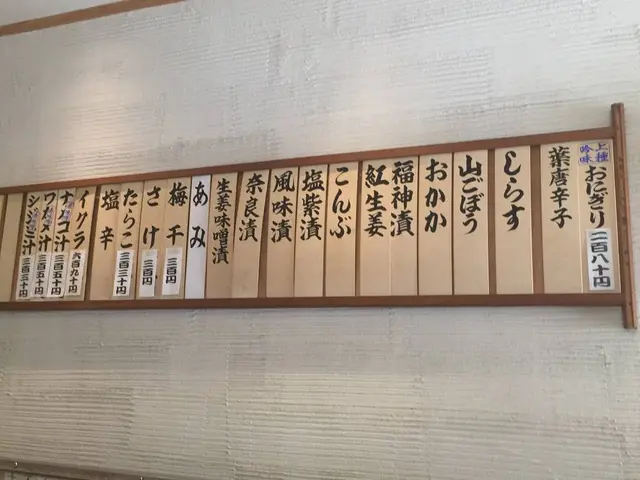 上種
吟味
おにぎり
二百八十円
葉唐辛子
しらす
山ごぼう
おかか
福神漬
紅生姜
こんぶ
塩紫漬
風味漬
奈良漬
生姜味噌漬
あみ
梅干
三百円
さけ
三百円
たらこ
三百三十円
塩辛
イクラ
六百九十円
ナメコ汁
三百五十円
ワカメ汁
三百五十円
シジミ汁
三百三十円